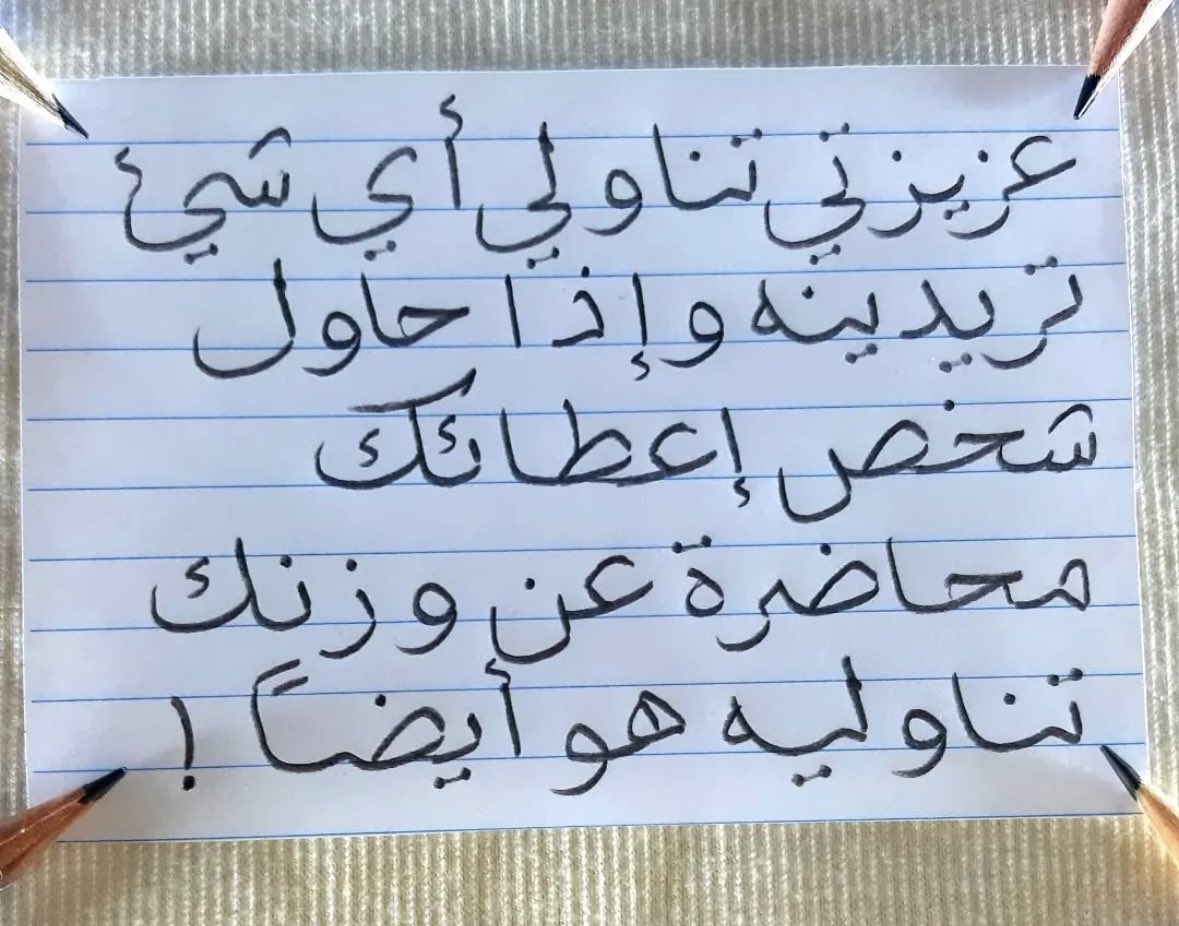 عزيزتي تناولي أي شيئ
تريدينه وإذا حاول
شخص إعطائك
محاضرة عن وزنك
تناوليه هو أيضاً !